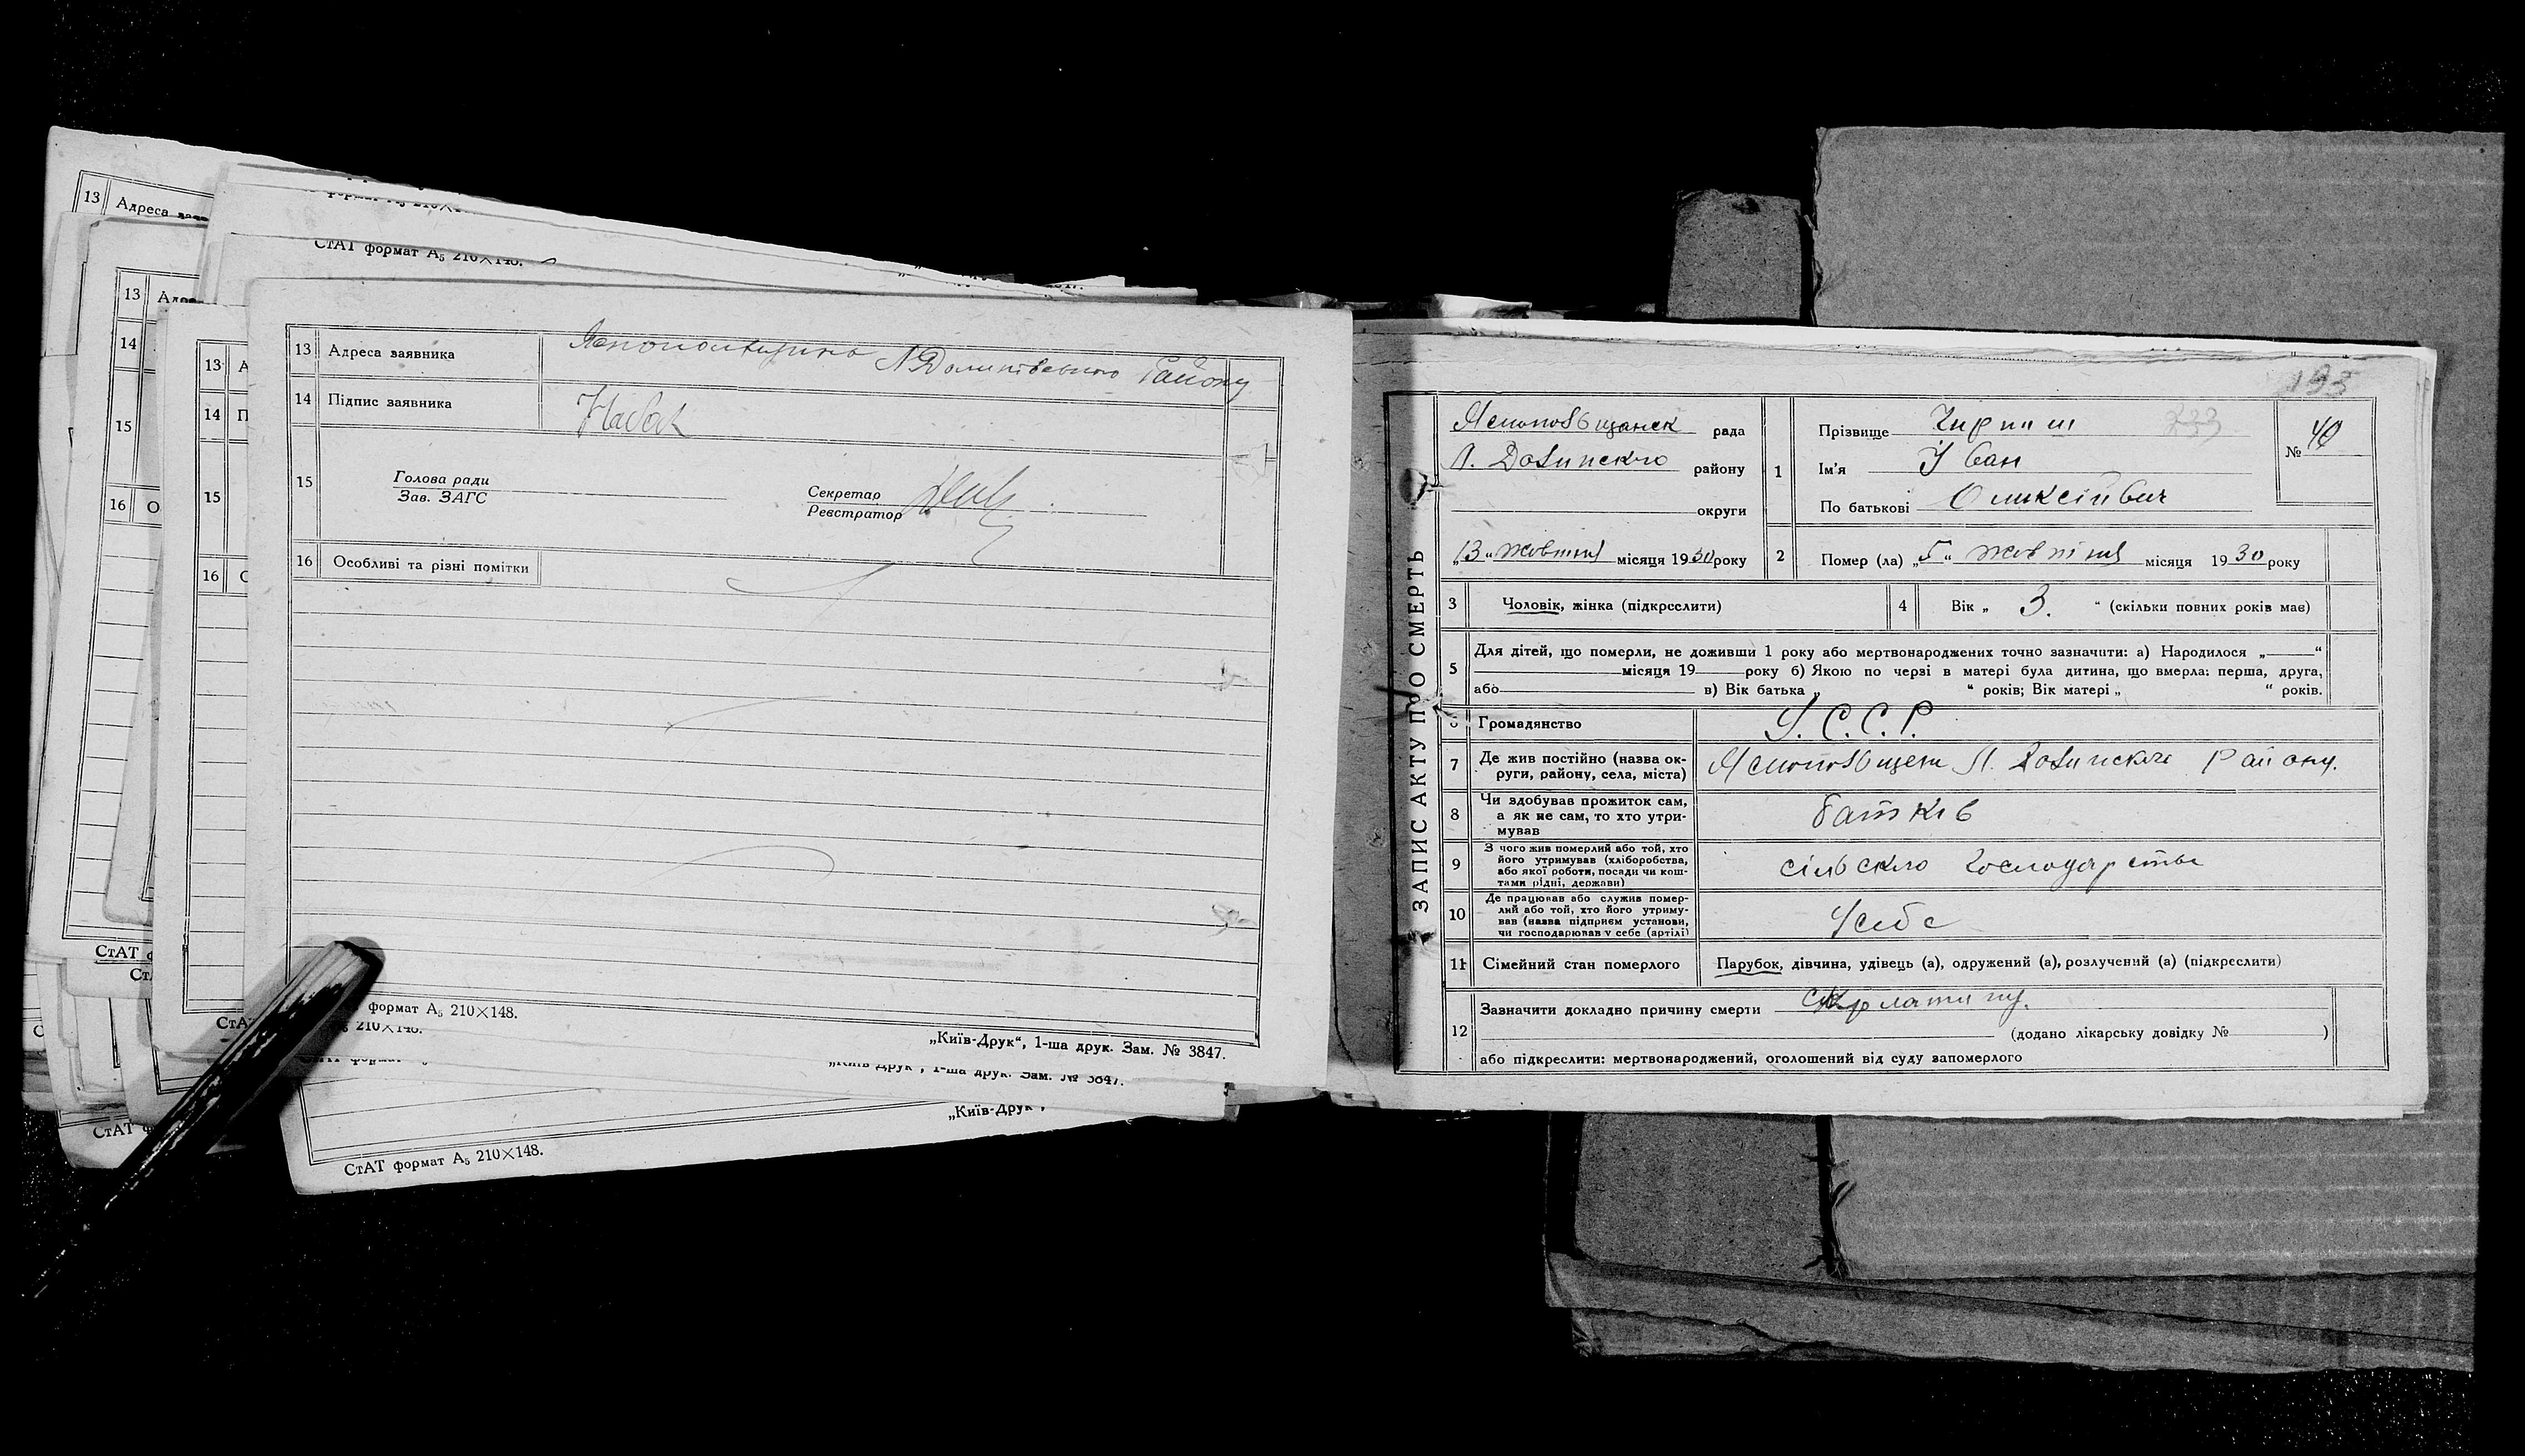 13 Адреса
13
13
14
14 П
15
15
16 О
16 С
СтАТ формат А₅ 210×148.
13 Адреса заявника Району
14 Підпис заявника
15 Голова ради
Зав. ЗАГС
Секретар
Реєстратор
16 Особливі та різні помітки
формат А₅ 210×148.
„Київ-Друк“, 1-ша друк. Зам. № 3847.
„Київ-Друк“, 1-ша друк. Зам. № 3847.
„Київ-Друк“,
СтАТ формат А₅ 210×148.
193
ЗАПИС АКТУ ПРО СМЕРТЬ
рада
району
округи
„13“ жовтня місяця 1930 року
1 Прізвище Чирпиш 233
Ім'я Іван
По батькові Оликсіївич
№ 40
2 Помер (ла) „5“ жовтня місяця 1930 року
3 Чоловік, жінка (підкреслити)
4 Вік „ 3. “ (скільки повних років має)
5 Для дітей, що померли, не доживши 1 року або мертвонароджених точно зазначити: а) Народилося „ “
місяця 19 року б) Якою по черзі в матері була дитина, що вмерла: перша, друга,
або в) Вік батька „ “ років; Вік матері „ “ років.
6 Громадянство У.С.С.Р.
7 Де жив постійно (назва ок-
руги, району, села, міста) Району.
8 Чи здобував прожиток сам,
а як не сам, то хто утри-
мував
батків
9 З чого жив померлий або той, хто
його утримував (хліборобства,
або якої роботи, посади чи кош-
тами рідні, держави)
сільскло господарства
10 Де працював або служив помер-
лий або той, хто його утриму-
вав (назва підприєм установи,
чи господарював у себе (артілі)
Усебе
11 Сімейний стан померлого Парубок, дівчина, удівець (а), одружений (а), розлучений (а) (підкреслити)
12 Зазначити докладно причину смерти
(додано лікарську довідку № )
або підкреслити: мертвонароджений, оголошений від суду запомерлого